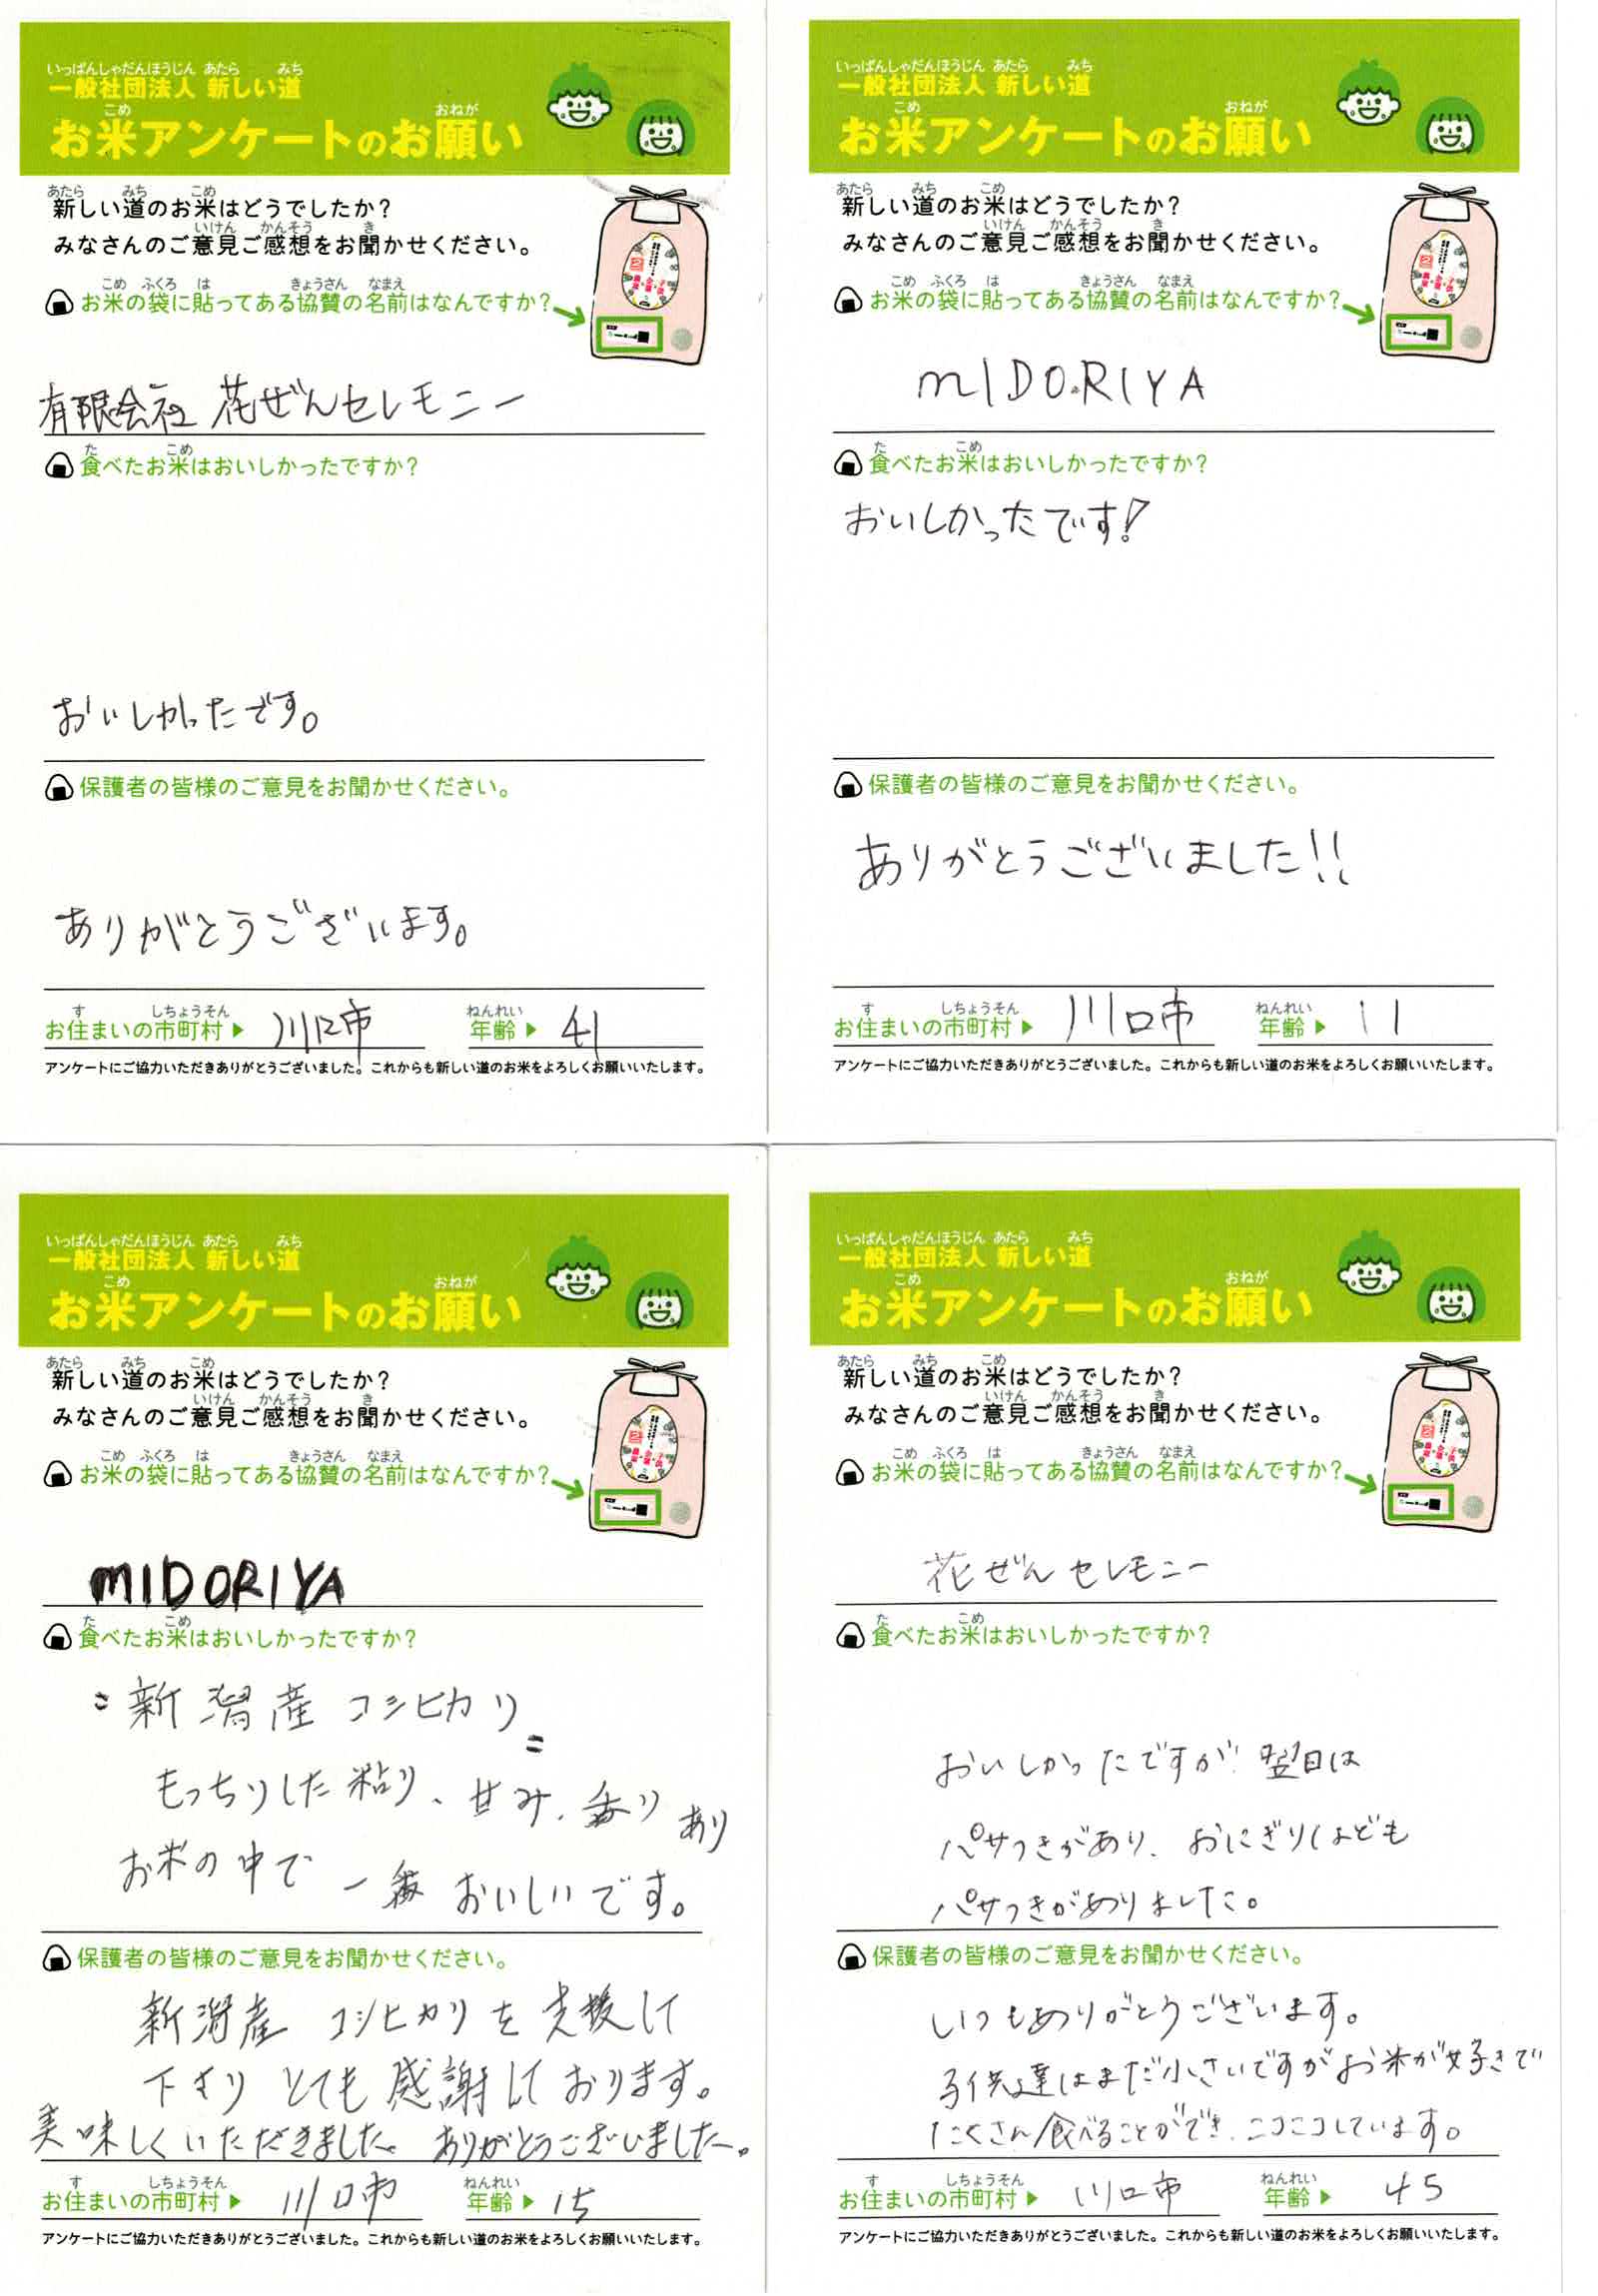 いっぱんしゃだんほうじん あたら みち
一般社団法人 新しい道
こめ おねが
お米アンケートのお願い
あたら みち こめ
新しい道のお米はどうでしたか？
いけん かんそう き
みなさんのご意見ご感想をお聞かせください。
こめ ふくろ は きょうさん なまえ
お米の袋に貼ってある協賛の名前はなんですか？
有限会社 花ぜんセレモニー
た こめ
食べたお米はおいしかったですか？
おいしかったです。
保護者の皆様のご意見をお聞かせください。
ありがとうございます。
す しちょうそん ねんれい
お住まいの市町村▶ 川口市 年齢▶ 41
アンケートにご協力いただきありがとうございました。これからも新しい道のお米をよろしくお願いいたします。
いっぱんしゃだんほうじん あたら みち
一般社団法人 新しい道
こめ おねが
お米アンケートのお願い
あたら みち こめ
新しい道のお米はどうでしたか？
いけん かんそう き
みなさんのご意見ご感想をお聞かせください。
こめ ふくろ は きょうさん なまえ
お米の袋に貼ってある協賛の名前はなんですか？
MIDORIYA
た こめ
食べたお米はおいしかったですか？
おいしかったです！
保護者の皆様のご意見をお聞かせください。
ありがとうございました!!
す しちょうそん ねんれい
お住まいの市町村▶ 川口市 年齢▶ 11
アンケートにご協力いただきありがとうございました。これからも新しい道のお米をよろしくお願いいたします。
いっぱんしゃだんほうじん あたら みち
一般社団法人 新しい道
こめ おねが
お米アンケートのお願い
あたら みち こめ
新しい道のお米はどうでしたか？
いけん かんそう き
みなさんのご意見ご感想をお聞かせください。
こめ ふくろ は きょうさん なまえ
お米の袋に貼ってある協賛の名前はなんですか？
MIDORIYA
た こめ
食べたお米はおいしかったですか？
〝新潟産 コシヒカリ〟
もっちりした粘り、甘み、香りあり
お米の中で 一番 おいしいです。
保護者の皆様のご意見をお聞かせください。
新潟産 コシヒカリを支援して
下さり とても感謝しております。
美味しくいただきました。ありがとうございました。
す しちょうそん ねんれい
お住まいの市町村▶ 川口市 年齢▶ 15
アンケートにご協力いただきありがとうございました。これからも新しい道のお米をよろしくお願いいたします。
いっぱんしゃだんほうじん あたら みち
一般社団法人 新しい道
こめ おねが
お米アンケートのお願い
あたら みち こめ
新しい道のお米はどうでしたか？
いけん かんそう き
みなさんのご意見ご感想をお聞かせください。
こめ ふくろ は きょうさん なまえ
お米の袋に貼ってある協賛の名前はなんですか？
花ぜんセレモニー
た こめ
食べたお米はおいしかったですか？
おいしかったですが、翌日は
パサつきがあり、おにぎりなども
パサつきがありました。
保護者の皆様のご意見をお聞かせください。
いつもありがとうございます。
子供達はまだ小さいですがお米が好きで
たくさん食べることができ、ニコニコしています。
す しちょうそん ねんれい
お住まいの市町村▶ 川口市 年齢▶ 45
アンケートにご協力いただきありがとうございました。これからも新しい道のお米をよろしくお願いいたします。